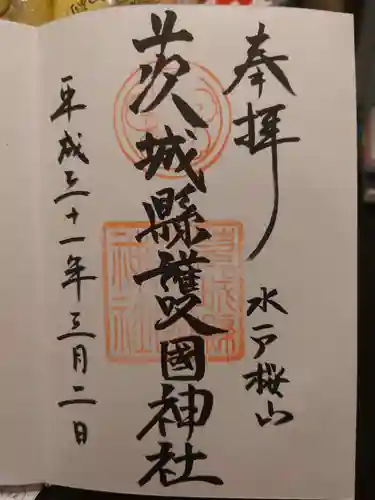 奉拝
水戸桜山
茨城縣護國神社
平成三十一年三月二日